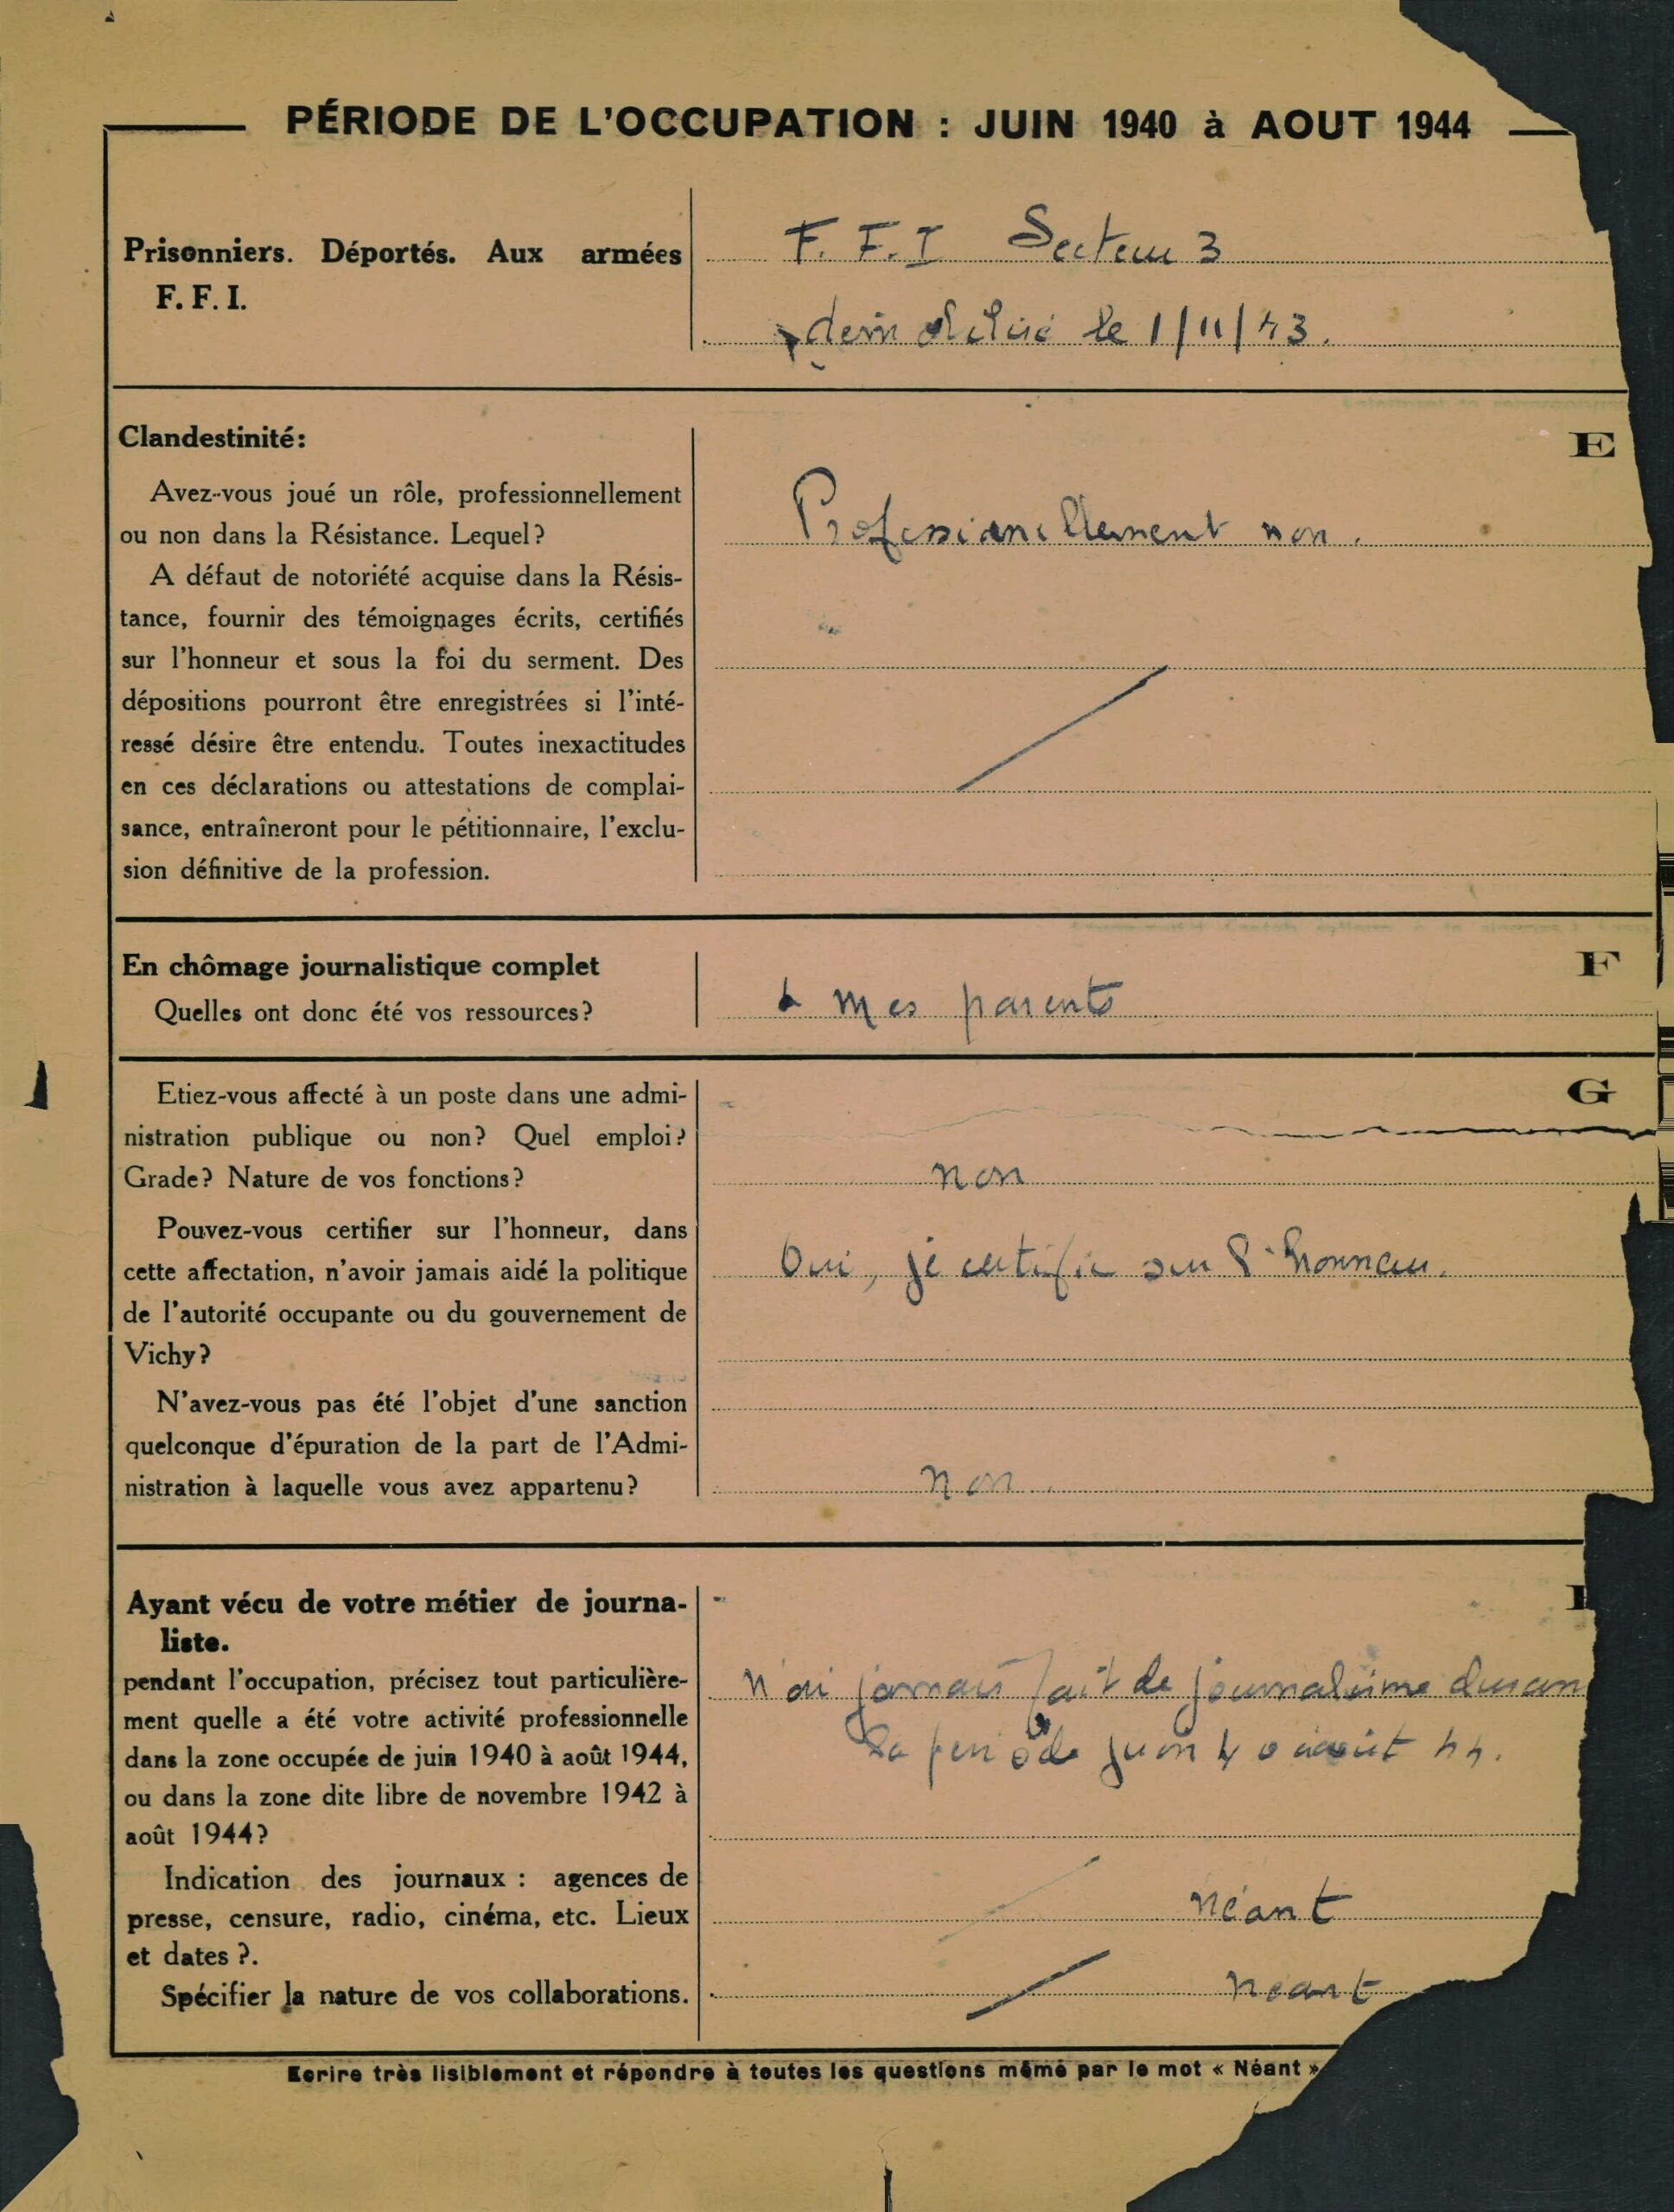 PÉRIODE DE L'OCCUPATION : JUIN 1940 à AOUT 1944
Prisonniers. Déportés. Aux armées
F. F. I.
F. F. I Secteur 3
le 1/11/43.
Clandestinité:
E
Avez-vous joué un rôle, professionnellement
ou non dans la Résistance. Lequel?
Professionnellement non.
A défaut de notoriété acquise dans la Résis-
tance, fournir des témoignages écrits, certifiés
sur l'honneur et sous la foi du serment. Des
dépositions pourront être enregistrées si l'inté-
ressé désire être entendu. Toutes inexactitudes
en ces déclarations ou attestations de complai-
sance, entraîneront pour le pétitionnaire, l'exclu-
sion définitive de la profession.
En chômage journalistique complet
F
Quelles ont donc été vos ressources?
mes parents
Etiez-vous affecté à un poste dans une admi-
G
nistration publique ou non? Quel emploi?
Grade? Nature de vos fonctions?
non
Pouvez-vous certifier sur l'honneur, dans
cette affectation, n'avoir jamais aidé la politique
Oui, je certifie sur l'honneur.
de l'autorité occupante ou du gouvernement de
Vichy?
N'avez-vous pas été l'objet d'une sanction
quelconque d'épuration de la part de l'Admi-
nistration à laquelle vous avez appartenu?
non
Ayant vécu de votre métier de journa-
liste.
pendant l'occupation, précisez tout particulière-
N'ai jamais fait de journalisme duran
ment quelle a été votre activité professionnelle
dans la zone occupée de juin 1940 à août 1944,
la periode juin 40 août 44.
ou dans la zone dite libre de novembre 1942 à
août 1944?
Indication des journaux : agences de
presse, censure, radio, cinéma, etc. Lieux
néant
et dates ?.
Spécifier la nature de vos collaborations.
néant
Ecrire très lisiblement et répondre à toutes les questions même par le mot « Néant »